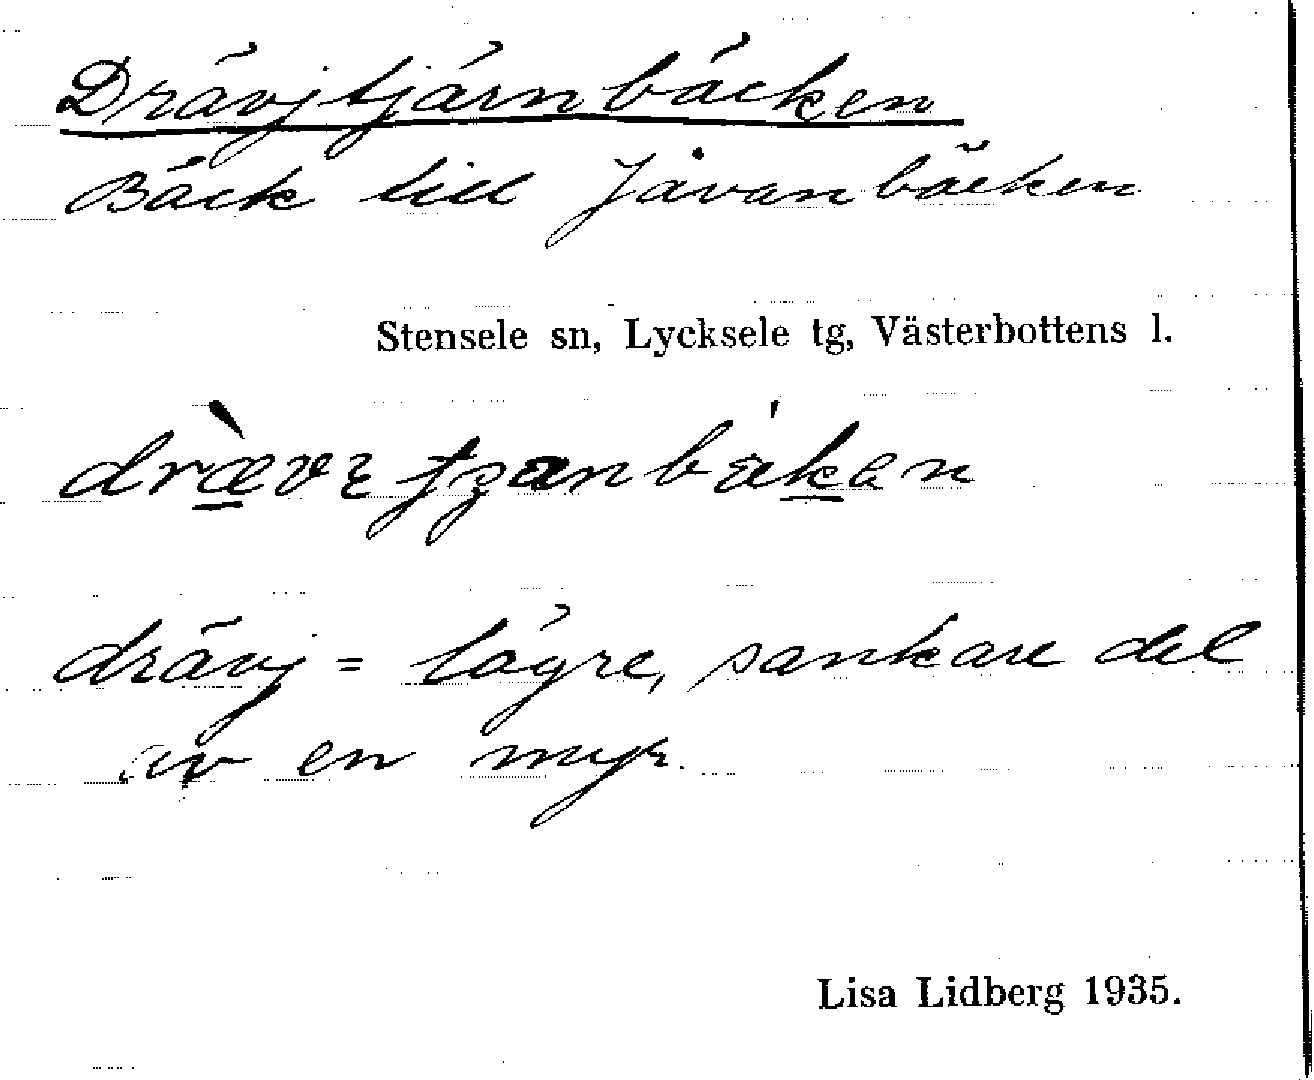 Drävjtjärnbäcken
Bäck till Jåvanbäcken
Stensele sn, Lycksele tg, Västerbottens l.
drävj = lägre, sankare del
av en myr.
Lisa Lidberg 1935.